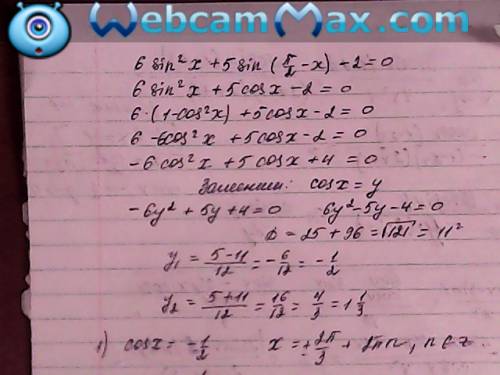 WebcamMax.com
6 sin²x + 5 sin (π/2 - x) - 2 = 0
6 sin²x + 5 cosx - 2 = 0
6·(1-cos²x) + 5cosx - 2 = 0
6 - 6cos²x + 5cosx - 2 = 0
-6cos²x + 5cosx + 4 = 0
Заменим: cosx = y
-6y² + 5y + 4 = 0 6y² - 5y - 4 = 0
D = 25 + 96 = √121 = 11²
y₁ = (5-11)/12 = -6/12 = -1/2
y₂ = (5+11)/12 = 16/12 = 4/3 = 1 1/3
1) cosx = -1/2 x = ± 2π/3 + 2πn, n ∈ z